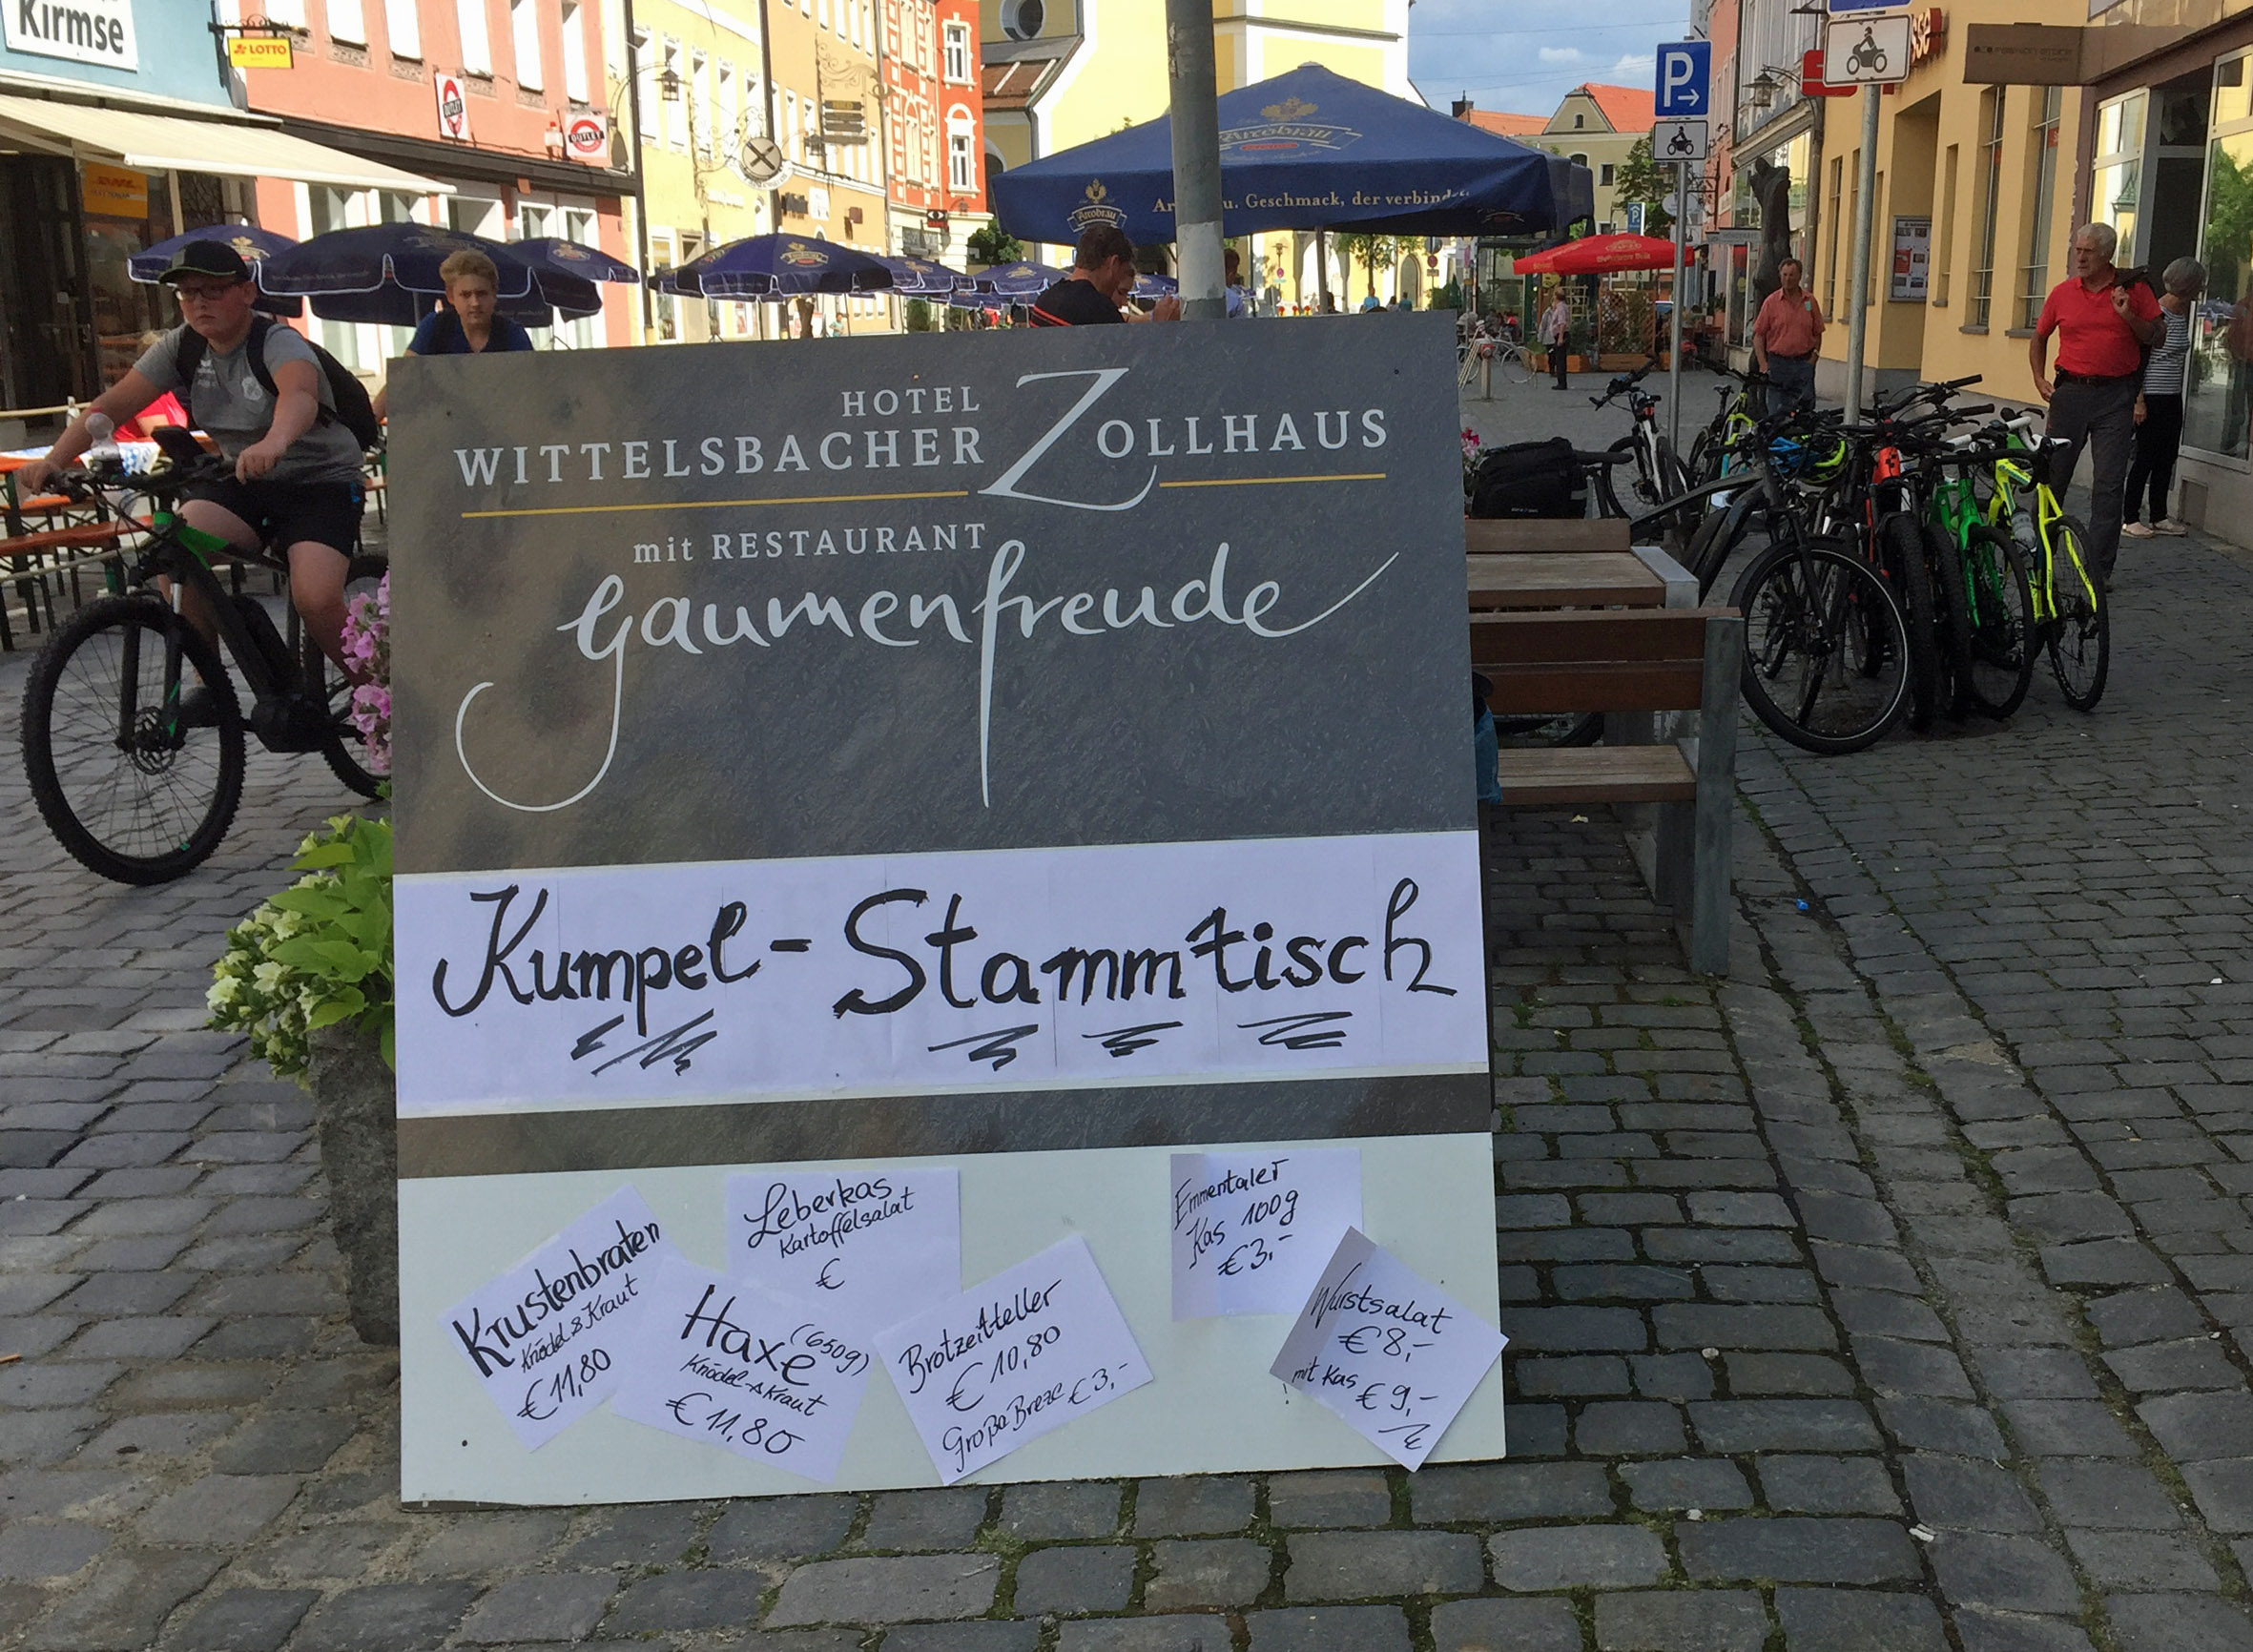 Kirmse
LOTTO
OUTLET
OUTLET
Arcobräu
Arcobräu
Geschmack, der verbindet.
P
HOTEL
WITTELSBACHER ZOLLHAUS
mit RESTAURANT
gaumenfreude
Kumpel-Stammtisch
Krustenbraten
Knödel & Kraut
€ 11,80
Leberkas
Kartoffelsalat
€
Haxe (650g)
Knödel & Kraut
€ 11,80
Brotzeitteller
€ 10,80
Große Breze € 3,-
Emmentaler
Kas 100g
€ 3,-
Wurstsalat
€ 8,-
mit Kas € 9,-